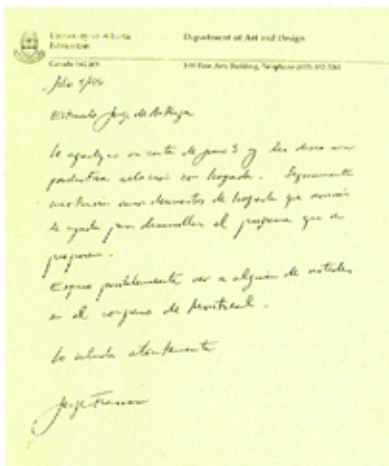 University of Alberta
Edmonton
Department of Art and Design
Canada
Fine Arts Building, Telephone
Estimado Jorge de
Le agradezco su carta de junio 3 y les deseo una
productiva relación con Icograda. Seguramente
unos documentos de Icograda que
de ayuda para desarrollar el programa que se
propone.
Espero posiblemente ver a alguien de ustedes
en el congreso de Montreal.
Lo saluda atentamente
Jorge Frascara